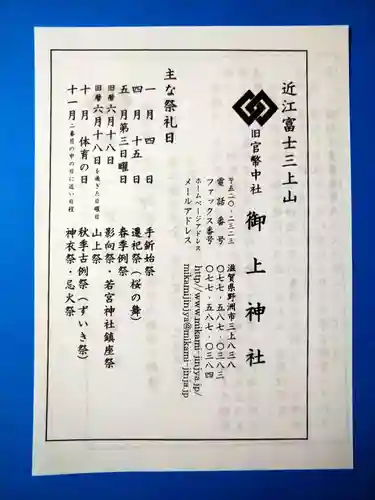 近江富士三上山
旧官幣中社 御上神社
〒五二〇-二三二三 滋賀県野洲市三上八三八
電話番号 〇七七-五八七-〇三八三
ファックス番号 〇七七-五八七-〇三八四
ホームページアドレス http//www.mikami-jinjya.jp/
メールアドレス mikamijinjya@mikami-jinja.jp
主な祭礼日
一月四日 手斧始祭
四月十五日 還祀祭(桜の舞)
五月第三日曜日 春季例祭
旧暦六月十八日 影向祭・若宮神社鎮座祭
旧暦六月十八日を過ぎた日曜日 山上祭
十月体育の日 秋季古例祭(ずいき祭)
十一月二番目の申の日に近い日程 神衣祭・忌火祭